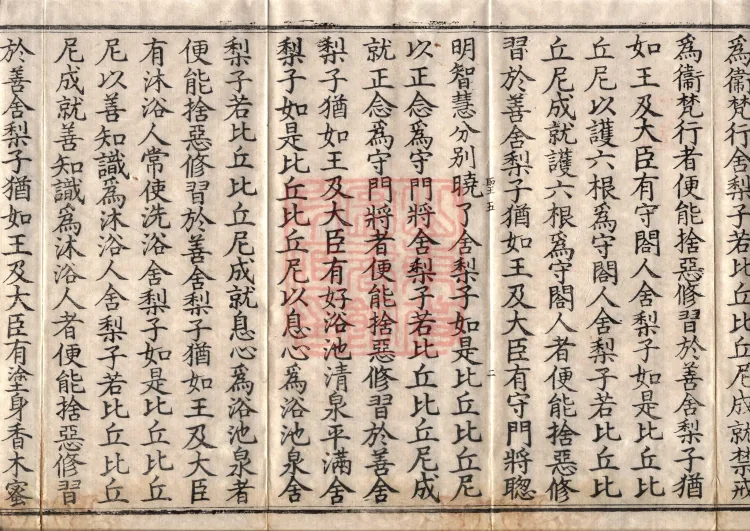 為衞梵行舍梨子若比丘比丘尼成就禁戒
為衞梵行者便能捨惡修習於善舍梨子猶
如王及大臣有守閤人舍梨子如是比丘比
丘尼以護六根為守閤人舍梨子若比丘比
丘尼成就護六根為守閤人者便能捨惡修
習於善舍梨子猶如王及大臣有守門將聦
明智慧分別曉了舍梨子如是比丘比丘尼
以正念為守門將舍梨子若比丘比丘尼成
就正念為守門將者便能捨惡修習於善舍
梨子猶如王及大臣有好浴池清泉平滿舍
梨子如是比丘比丘尼以息心為浴池泉舍
梨子若比丘比丘尼成就息心為浴池泉者
便能捨惡修習於善舍梨子猶如王及大臣
有沐浴人常使洗浴舍梨子如是比丘比丘
尼以善知識為沐浴人舍梨子若比丘比丘
尼成就善知識為沐浴人者便能捨惡修習
於善舍梨子猶如王及大臣有塗身香木蜜